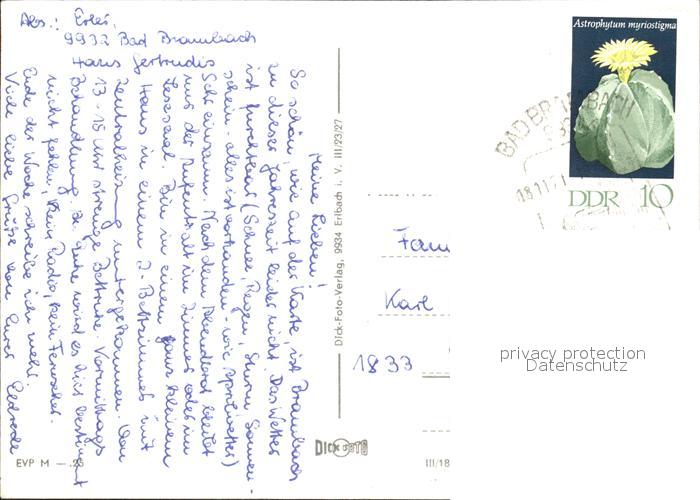 Abs.: Erler,
9932 Bad Brambach
Haus Gertrudis
Meine Lieben!
So schön, wie auf der Karte, ist Brambach
zu dieser Jahreszeit leider nicht. Das Wetter
ist furchtbar (Schnee, Regen, Sturm, Sonnen-
schein - alles ist vorhanden - wie Aprilwetter)
Sehr einsam. Nach dem Abendbrot bleibt
nur der Aufenthalt im Zimmer oder im
Lesesaal. Bin in einem ganz kleinen
Haus in einem 2-Bettzimmer mit
Zentralheizung untergekommen. Von
13 - 15 Uhr strenge Bettruhe. Vormittags
Behandlung. Zu Ruhe wird es hier bestimmt
nicht fehlen, kein Radio, kein Fernseher.
Ende der Woche schreibe ich mehr.
Viele liebe Grüße von Eurer
EVP M — .25
Dick-Foto-Verlag, 9934 Erlbach i. V. III/23/27
DICK FOTO
III/18
Astrophytum myriostigma
DDR 10
BAD BRAMBACH
18.11.71
Fam
Karl
1833
privacy protection
Datenschutz